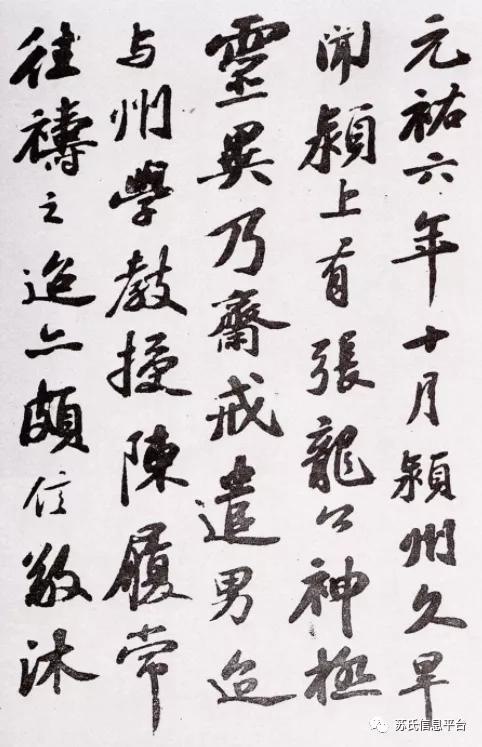 元祐六年十月颍州久旱
闻颍上有張龍公神極
靈異乃齋戒遣男迨
与州學教授陳履常
往禱之迨亦頗信敬沐
苏氏信息平台